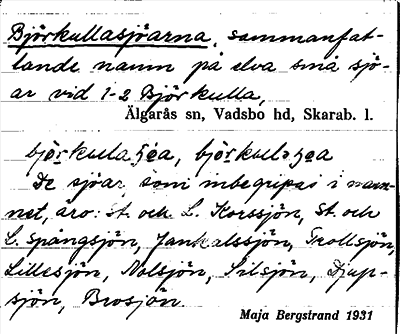 Björkullasjöarna, sammanfat-
tande namn på elva små sjö-
ar vid 1-2 Björkulla,
Älgarås sn, Vadsbo hd, Skarab. l.
De sjöar, som inbegripas i nam-
net, äro: St. och L. Korssjön, St. och
L. Spångsjön, Jankalssjön, Trollsjön,
Lillesjön, Nolsjön, Silsjön, Djup-
sjön, Brosjön.
Maja Bergstrand 1931